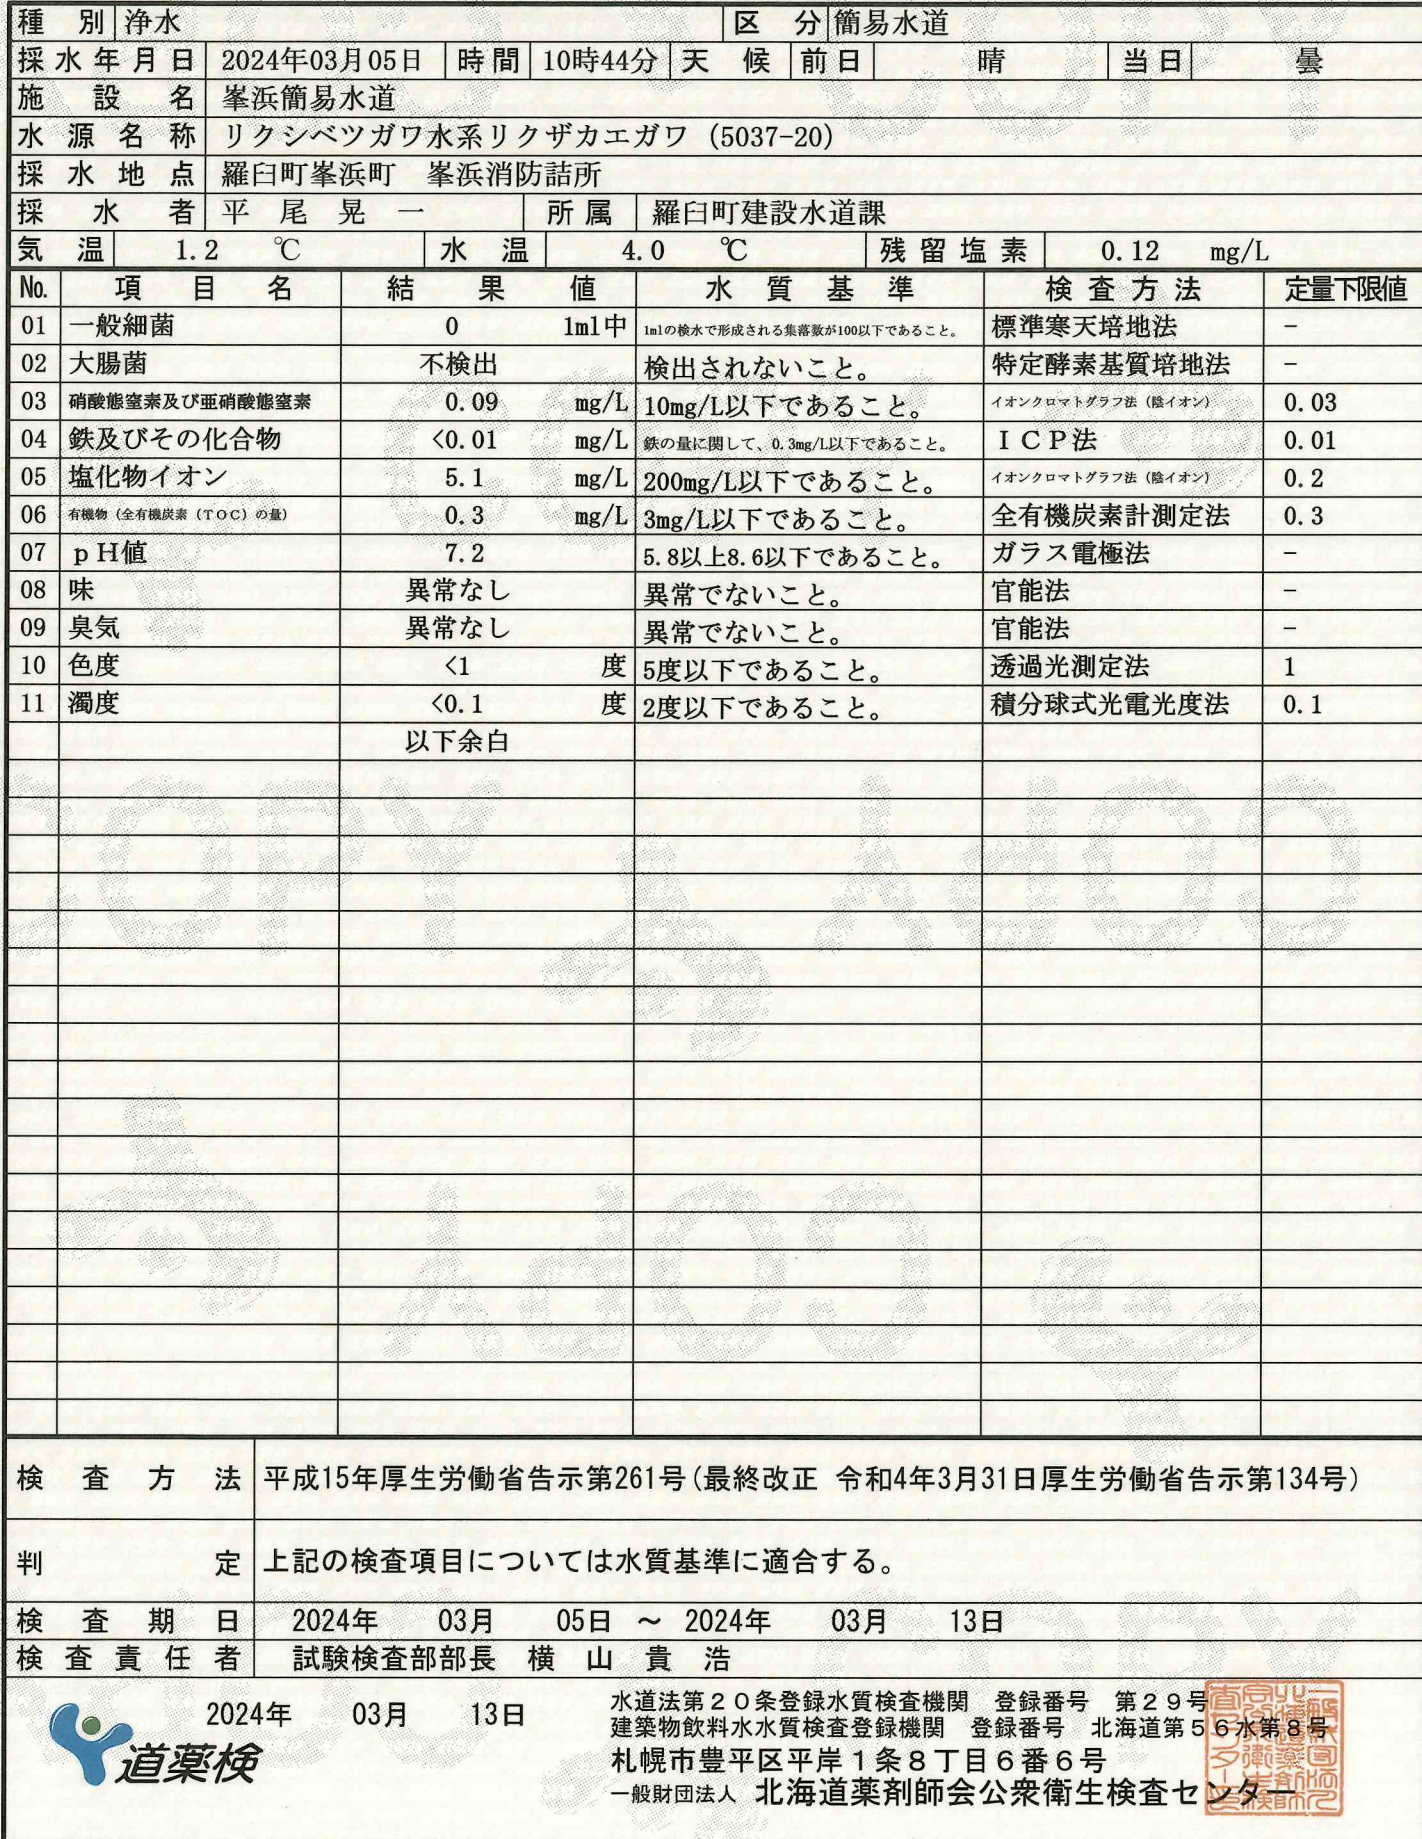 種別 浄水 区分 簡易水道
採水年月日 2024年03月05日 時間 10時44分 天候 前日 晴 当日 曇
施設名 峯浜簡易水道
水源名称 リクシベツガワ水系リクザカエガワ (5037-20)
採水地点 羅臼町峯浜町 峯浜消防詰所
採水者 平尾晃一 所属 羅臼町建設水道課
気温 1.2 ℃ 水温 4.0 ℃ 残留塩素 0.12 mg/L
No. 項目名 結果値 水質基準 検査方法 定量下限値
01 一般細菌 0 1ml中 1mlの検水で形成される集落数が100以下であること。 標準寒天培地法 −
02 大腸菌 不検出 検出されないこと。 特定酵素基質培地法 −
03 硝酸態窒素及び亜硝酸態窒素 0.09 mg/L 10mg/L以下であること。 イオンクロマトグラフ法（陰イオン） 0.03
04 鉄及びその化合物 <0.01 mg/L 鉄の量に関して、0.3mg/L以下であること。 ＩＣＰ法 0.01
05 塩化物イオン 5.1 mg/L 200mg/L以下であること。 イオンクロマトグラフ法（陰イオン） 0.2
06 有機物（全有機炭素（ＴＯＣ）の量） 0.3 mg/L 3mg/L以下であること。 全有機炭素計測定法 0.3
07 ｐＨ値 7.2 5.8以上8.6以下であること。 ガラス電極法 −
08 味 異常なし 異常でないこと。 官能法 −
09 臭気 異常なし 異常でないこと。 官能法 −
10 色度 <1 度 5度以下であること。 透過光測定法 1
11 濁度 <0.1 度 2度以下であること。 積分球式光電光度法 0.1
以下余白
COPY COPY
COPY
検査方法 平成15年厚生労働省告示第261号(最終改正 令和4年3月31日厚生労働省告示第134号)
判定 上記の検査項目については水質基準に適合する。
検査期日 2024年 03月 05日 ～ 2024年 03月 13日
検査責任者 試験検査部部長 横山貴浩
2024年 03月 13日
道薬検
水道法第２０条登録水質検査機関 登録番号 第２９号
建築物飲料水水質検査登録機関 登録番号 北海道第５６水第８号
札幌市豊平区平岸１条８丁目６番６号
一般財団法人 北海道薬剤師会公衆衛生検査センター